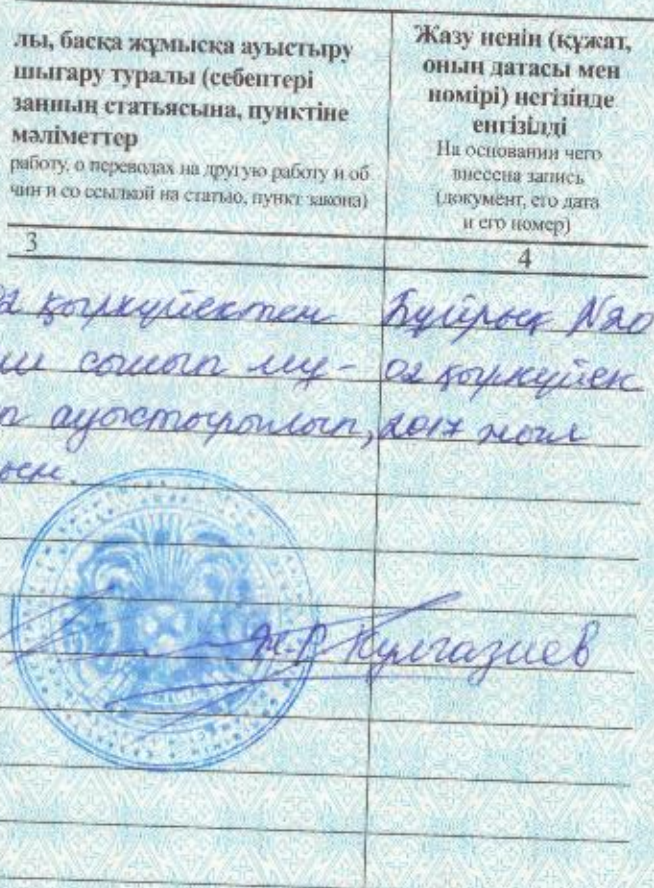 лы, басқа жұмысқа ауыстыру
шығару туралы (себептері
заңның статьясына, пунктіне
мәліметтер
работу, о переводах на другую работу и об
чин и со ссылкой на статью, пункт закона)
Жазу ненің (құжат,
оның датасы мен
номірі) негізінде
енгізілді
На основании чего
внесена запись
(документ, его дата
и его номер)
3
4
қыркүйектен
сынып му-
ауыстырылып,
Бұйрық №20
02 қыркүйек
2017 жыл
Кулгазиев